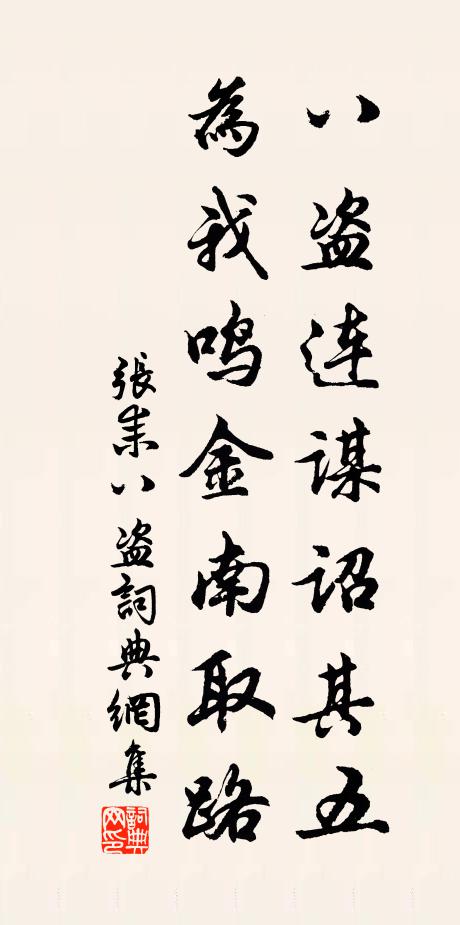 八盗連謀詔其五
為我鳴金南取路
張耒八盗詞典網集
詞典網印